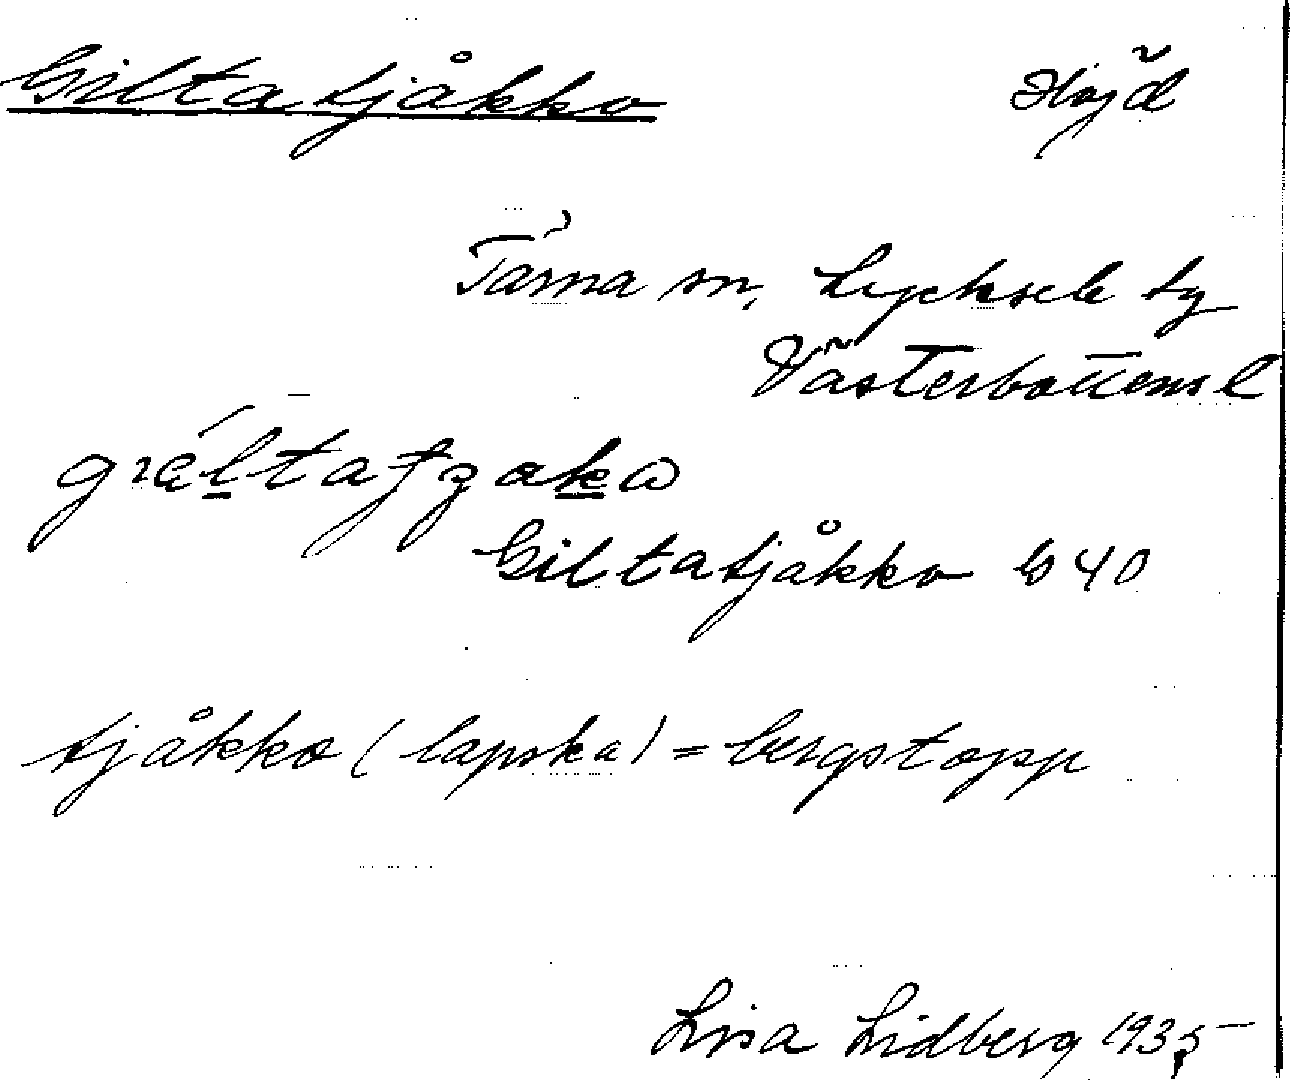 Giltatjåkko Höjd
Tärna sn, Lycksele tg
Västerbottens l
Giltatjåkko G 40
tjåkko (lapska) = bergstopp
Lisa Lidberg 1935